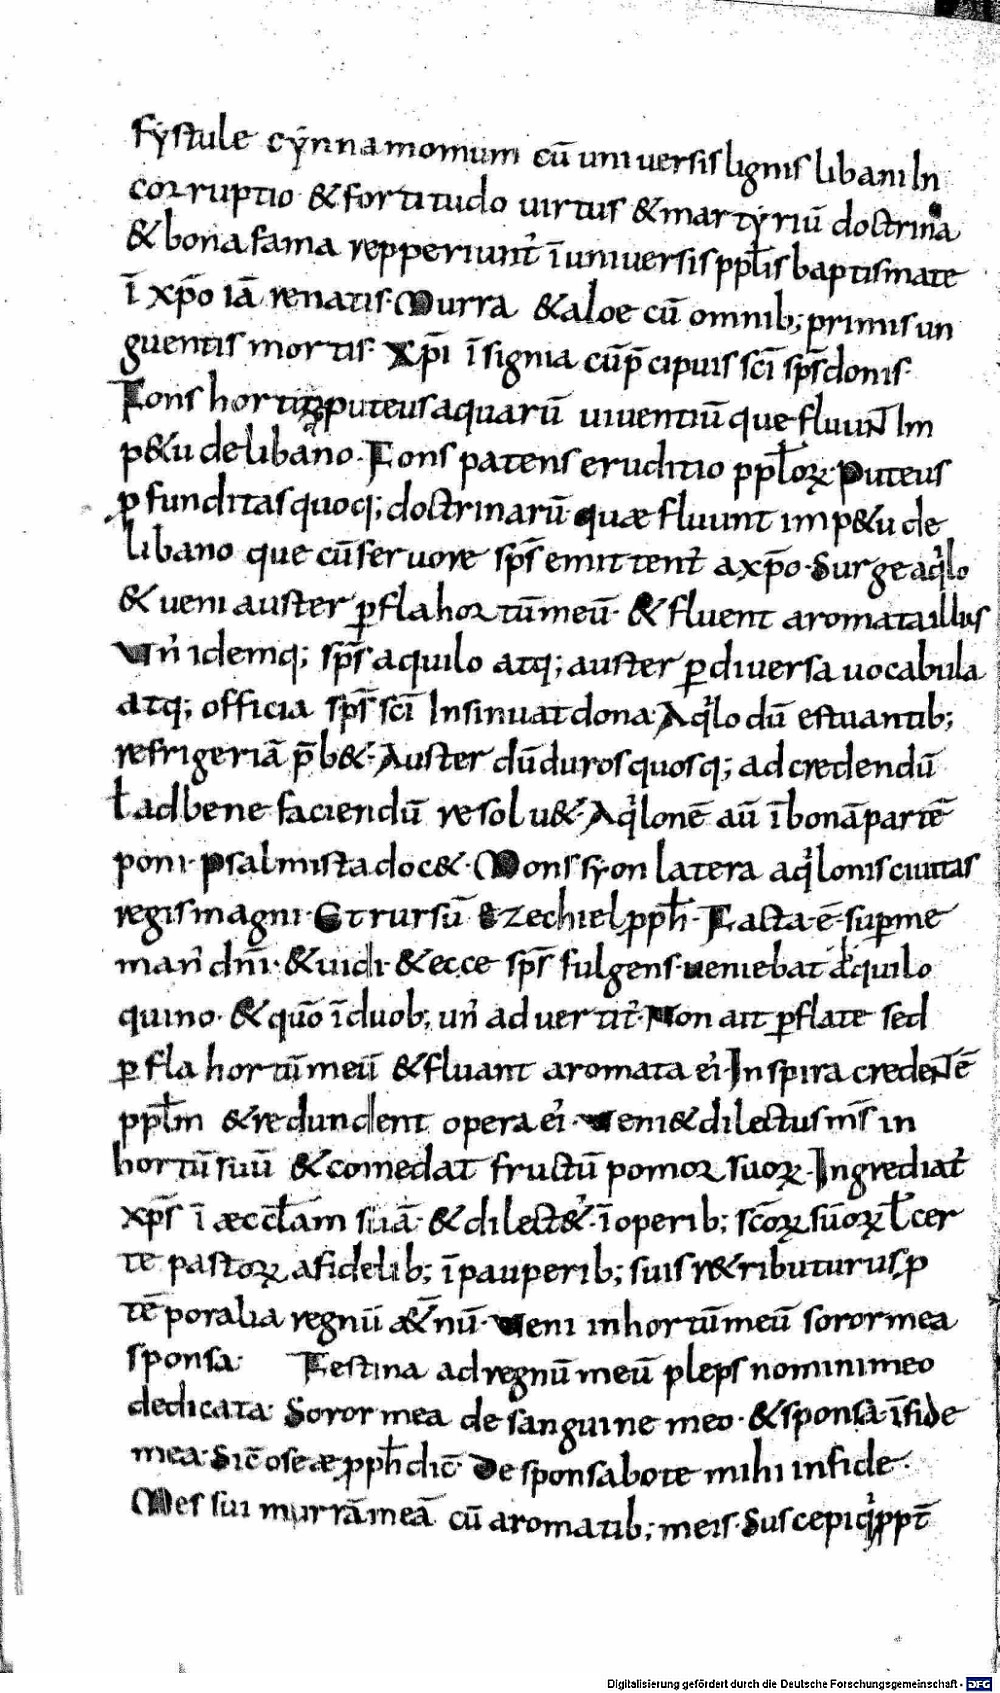 fystule cynnamomum cū uniuersis lignis libani In
corruptio · & fortitudo uirtus & martyriū doctrina
& bona fama repperiunt᷒ ī uniuersis pplis baptismate
ī xp̄o iā renatis · Murra & aloe cū omnib; primis un
guentis mortis · Xp̄i īsignia cū p̄cipuis sc̄i sp̄s donis ·
Fons hortorꝝ puteus aquarū uiuentiū que fluunt Im
p&u de libano · Fons patens eruditio pplorꝝ · Puteus
ꝓfunditas quoq; doctrinarū · quæ fluunt imp&u de
libano que cū feruore sp̄s emittent᷒ a xp̄o · Surge aqⁱlo
& ueni auster ꝑfla hortū meū · & fluent aromata illius
Vn᷒ idemq; sp̄s aquilo atq; auster ꝑ diuersa uocabula
atq; officia sp̄s sc̄i Insinuat dona · Aqⁱlo dū estuantib;
refrigeriā p̄b& · Auster dū duros quosq; ad credendū
ł ad bene faciendū resolu& · Aqⁱlonē aū ī bonā partē
poni · psalmista doc& · Mons syon latera aqⁱlonis ciuitas
regis magni · Et rursū Ezechiel ꝓph · Facta ē · suꝑ me
man᷒ dn̄i · & uidi · & ecce sp̄s fulgens · ueniebat aquilo
quino · & quō ī duob; un᷒ aduertit᷒ · Non ait ꝑflate sed
ꝑfla hortū meū & fluant aromata ei᷒ · Inspira credentē
pplm & redundent opera ei᷒ · Veni & dilectus ms̄ in
hortū suū & comedat fructū pomorꝝ suorꝝ · Ingrediat᷒
xp̄s ī æccłam suā · & dilect&᷒ · ī operib; sc̄orꝝ suorꝝ ł cer
te pastorꝝ a fidelib; ī pauperib; suis r&ributurus ꝓ
tēporalia regnū &̄nū · Veni in hortū meū soror mea
sponsa · Festina ad regnū meū pleps nomini meo
dedicata · Soror mea de sanguine meo · & sponsa ī fide
mea · Sic̄ oseæ ꝓph dic̄ · Desponsabo te mihi in fide ·
Messui murrā meā cū aromatib; meis · Suscepi qⁱppe